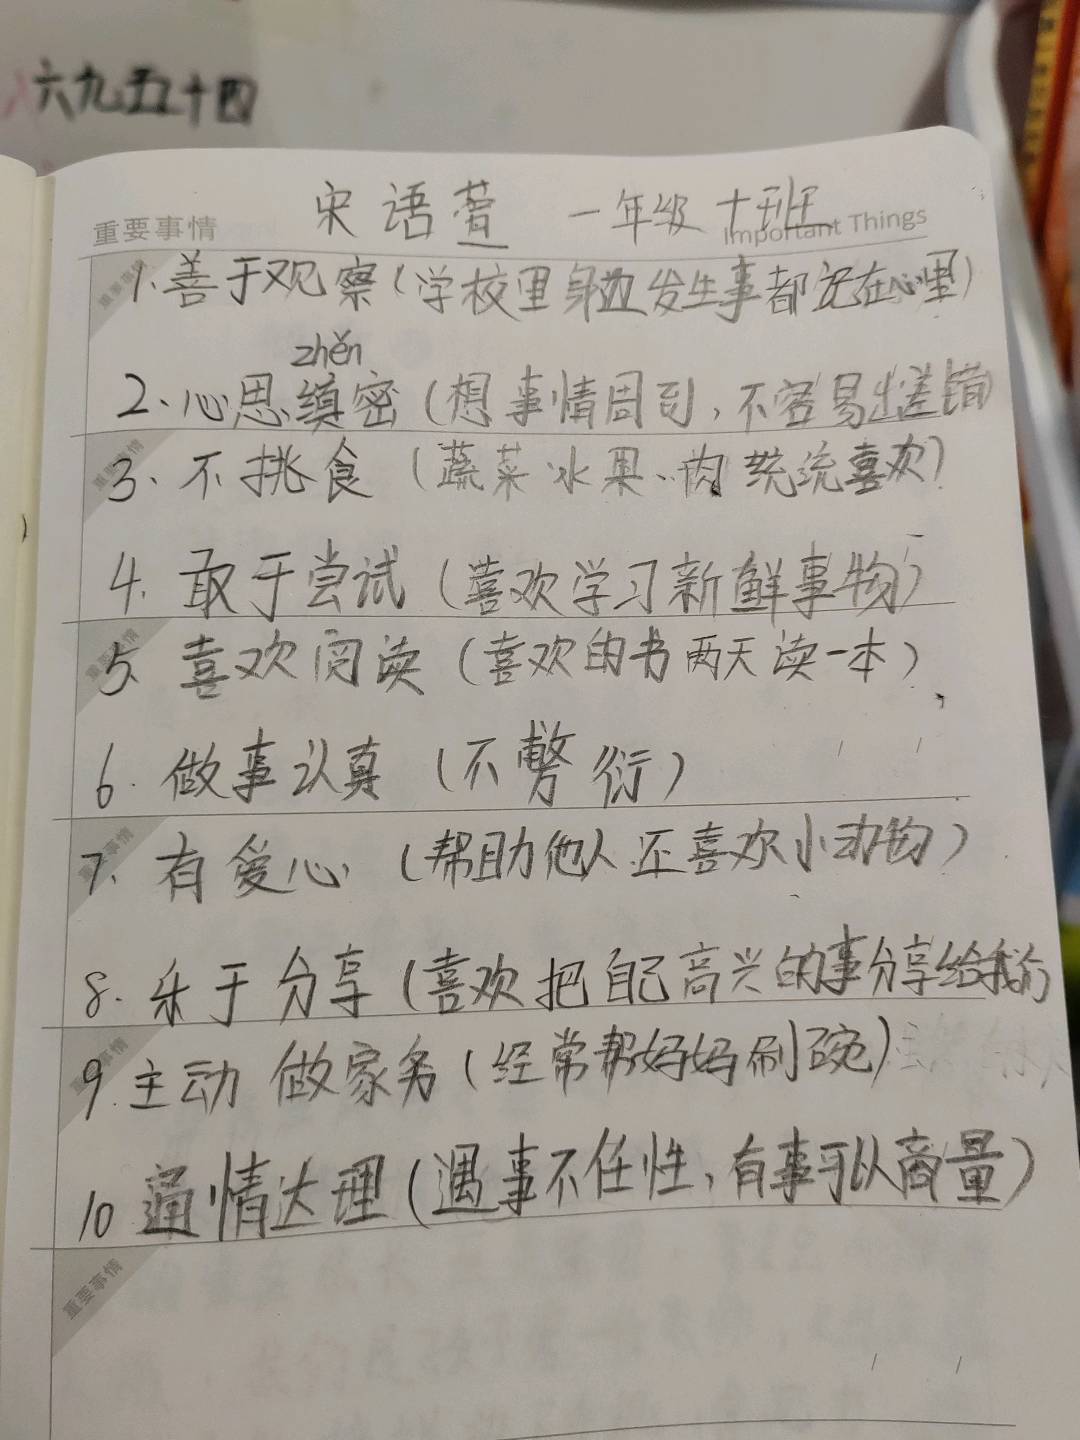 六九五十四
宋语萱 一年级十班
重要事情 Important Things
1.善于观察(学校里身边发生事都记在心里)
zhěn
2.心思缜密(想事情周到,不容易出差错)
3、不挑食(蔬菜、水果、肉统统喜欢)
4.敢于尝试(喜欢学习新鲜事物)
5.喜欢阅读(喜欢的书两天读一本)
6.做事认真(不敷衍)
7、有爱心(帮助他人还喜欢小动物)
8.乐于分享(喜欢把自己高兴的事分享给我们
9.主动做家务(经常帮妈妈刷碗)
10 通情达理(遇事不任性,有事可以商量)
重要事情
重要事情
重要事情
重要事情
重要事情
重要事情